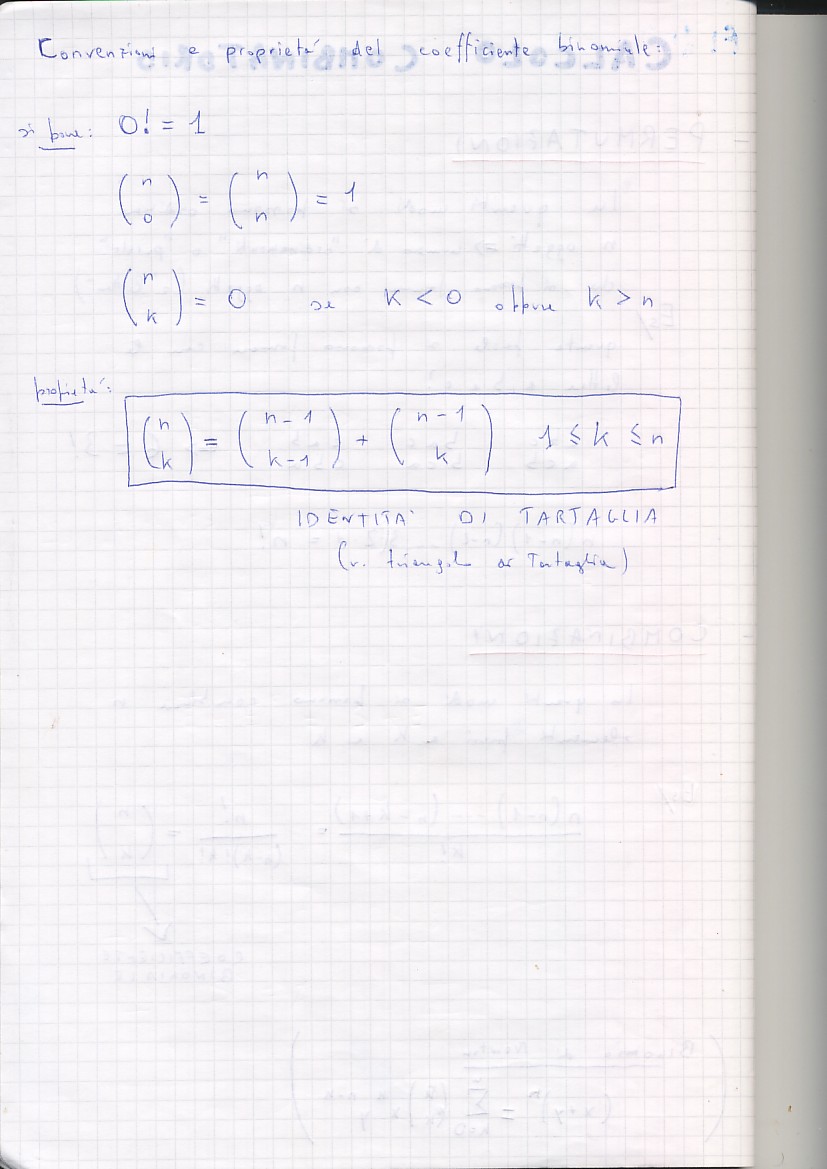 Convenzioni e proprietà del coefficiente binomiale:
si pone: 0! = 1
(n 0) = (n n) = 1
(n k) = 0 se K < 0 oppure k > n
proprietà:
(n k) = (n-1 k-1) + (n-1 k) 1 ≤ k ≤ n
IDENTITA' DI TARTAGLIA
(v. triangolo di Tartaglia)